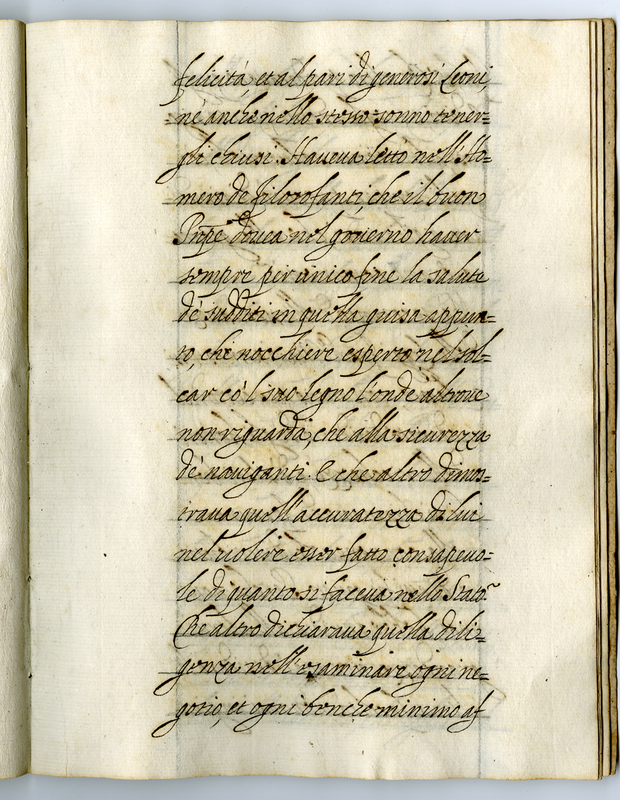 felicitá, et al pari di generosi Leoni,
nè anche nello stesso sonno tener=
gli chiusi. Haueua letto nell'Ho=
mero de Filosofanti, che il buon
Prnpe douea nel gouerno hauer
sempre per unico fine la salute
de' sudditi in quella guisa appun=
to, che nocchiere esperto nel sol=
car co'l suo legno l'onde altroue
non riguarda, che alla sicurezza
de' nauiganti. E che altro dimos=
traua quell'accuratezza di lui
nel uolere esser fatto consapeuo=
le di quanto si faceua nello Stato?
Che altro dichiaraua quella dili=
genza nell'esaminare ogni ne=
gotio, et ogni benche minimo af